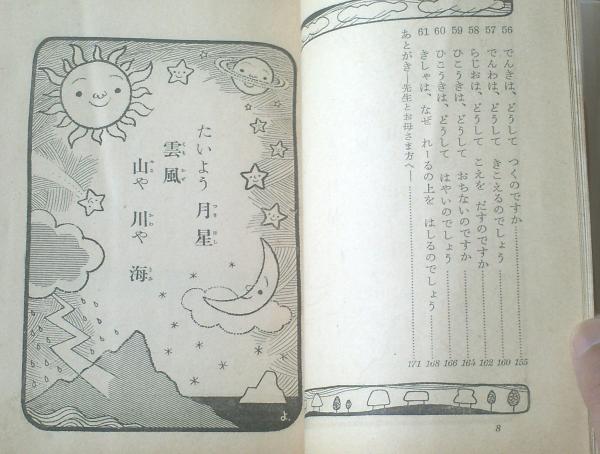 56 でんきは、どうして つくのですか 155
57 でんわは、どうして きこえるのでしょう 160
58 らじおは、どうして こえを だすのですか 162
59 ひこうきは、どうして おちないのですか 164
60 ひこうきは、どうして はやいのでしょう 166
61 きしゃは、なぜ れーるの上を はしるのでしょう 168
あとがき―先生とお母さま方へ― 171
8
たいよう 月 星
つき ほし
雲 風
くも かぜ
山や 川や 海
やま かわ うみ
よ.